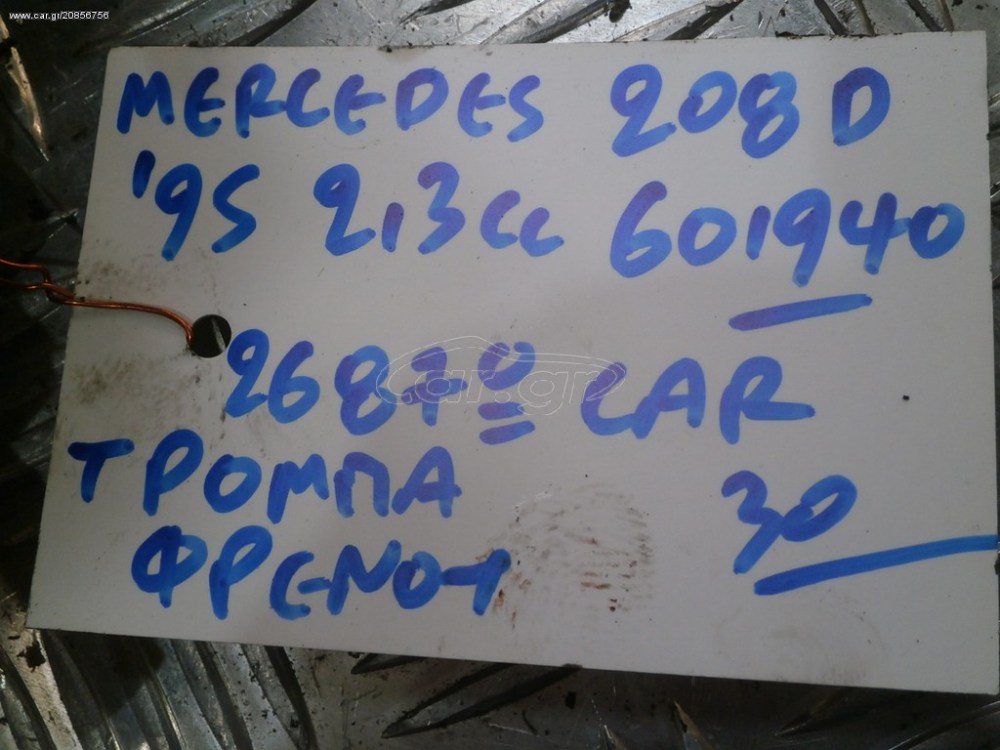 www.car.gr/20856756
MERCEDES 208 D
'95 2,3cc 601940
26870 CAR
car.gr
ΤΡΟΜΠΑ 30
ΦΡΕΝΟΥ